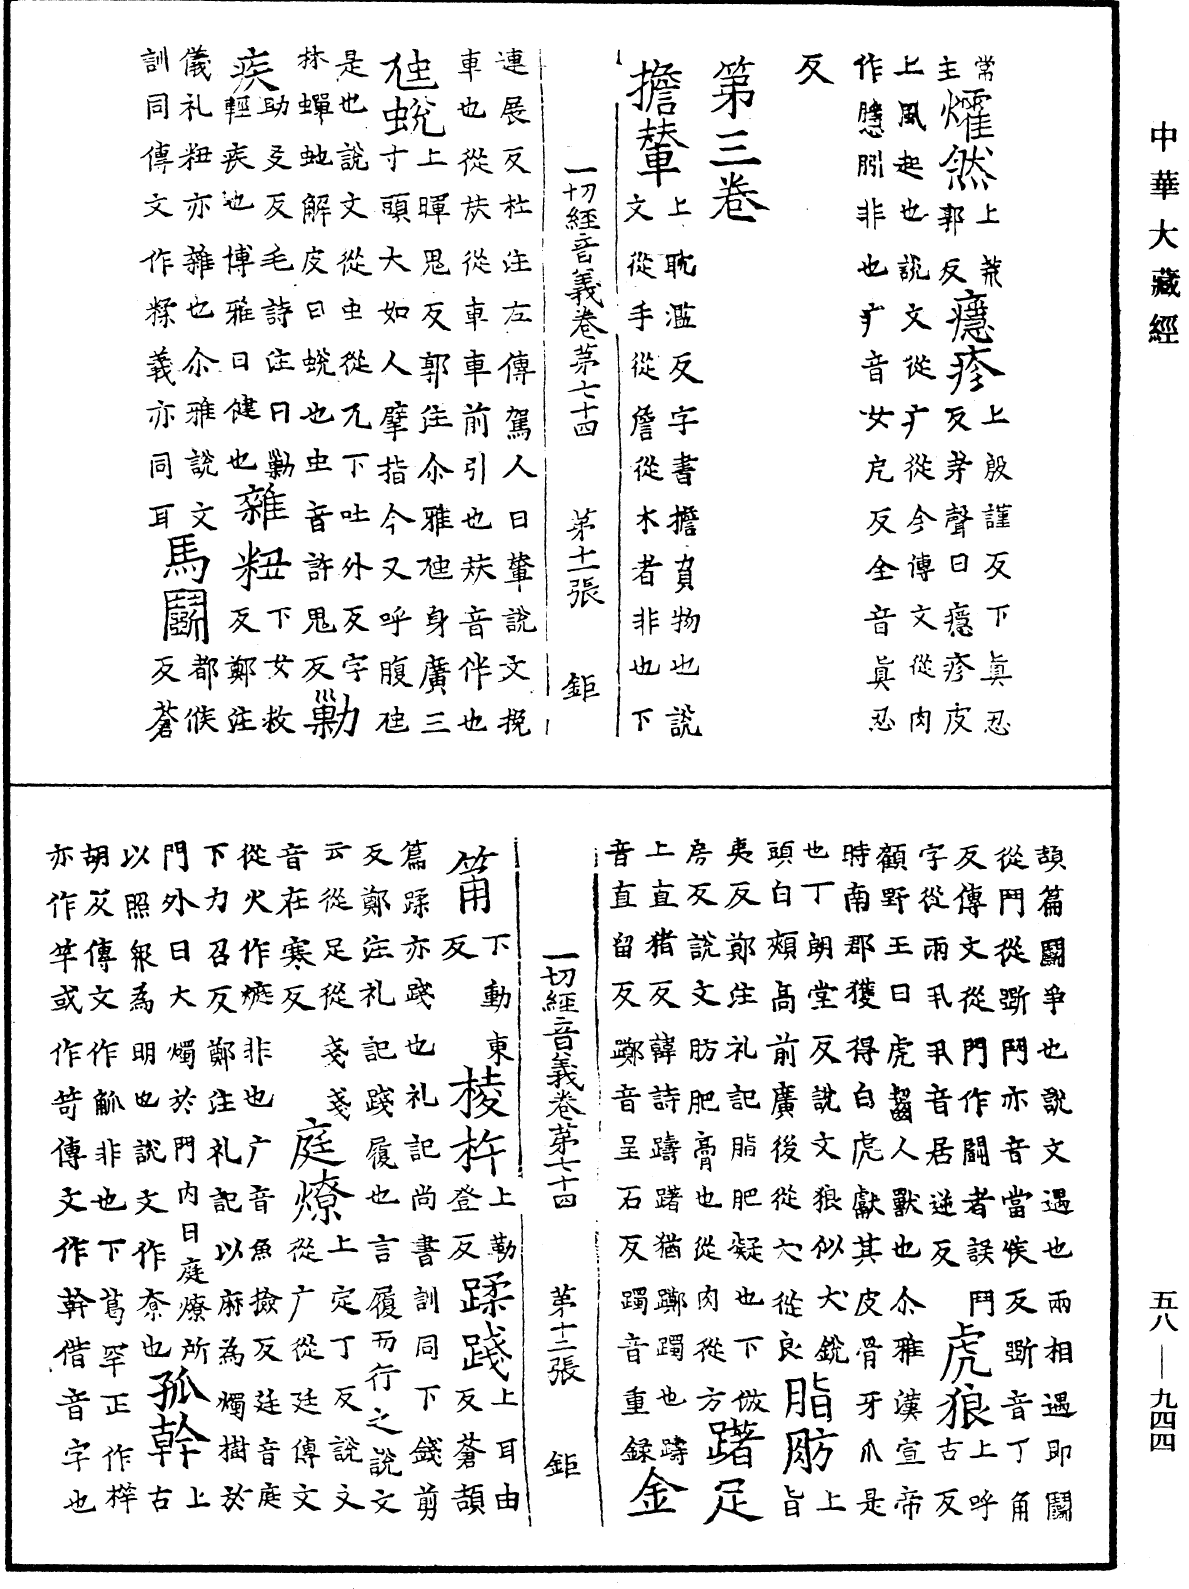 中華大藏經
常
主燿然上荒郭反癮疹上殷謹反下真忍反考聲曰癮疹皮
上風起也說文從疒從今傳文從肉
作𦞤胗非也疒音女戹反全音真忍
反
第三卷
擔輦上耽濫反字書擔負物也說文從手從詹從木者非也下
連展反杜注左傳駕人曰輦說文挽
車也從㚘從車車前引也㚘音伴也
虺蛻上暉鬼反郭注尒雅虺身廣三寸頭大如人擘指今又呼腹虺
是也說文從虫從兀下吐外反字
林蟬虵解皮曰蛻也虫音許鬼反勦
疾助爻反毛詩注曰勦輕疾也博雅曰健也雜粈下女救反鄭注
儀礼粈亦雜也尒雅說文馬鬬都候反蒼
訓同傳文作糅義亦同耳
一切經音義卷第七十四　第十一張　鉅
頡篇鬬爭也說文遇也兩相遇即鬬
從鬥從斲鬥亦音當候反斲音丁角
反傳文從門作鬪者誤鬥虎狼上呼古反
字從兩丮丮音居逆反
顧野王曰虎齧人獸也尒雅漢宣帝
時南郡獲得白虎獻其皮骨牙爪是
也丁朗堂反說文狼似犬銳
頭白頰高前廣後從犬從良脂肪上旨
夷反鄭注礼記脂肥凝也下倣
房反說文肪肥膏也從肉從方躇足
上直猪反韓詩躊躇猶躑躅也躊
音直留反躑音呈石反躅音重録金
一切經音義卷第七十四　第十二張　鉅
筩下動東反棱杵上勒登反蹂踐上耳由反蒼頡
篇蹂亦踐也礼記尚書訓同下錢剪
反鄭注礼記踐履也言履而行之說文
云從足從戔戔上定丁反說文
音在寒反庭燎從广從廷傳文
從火作㾕非也广音魚撿反廷音庭
下力召反鄭注礼記以麻為燭樹於
門外曰大燭於門內曰庭燎所
以照衆為明也說文作尞也孤幹上古
胡反傳文作觚非也下葛罕正作榦
亦作竿或作笴傳文作幹借音字也
五八—九四四